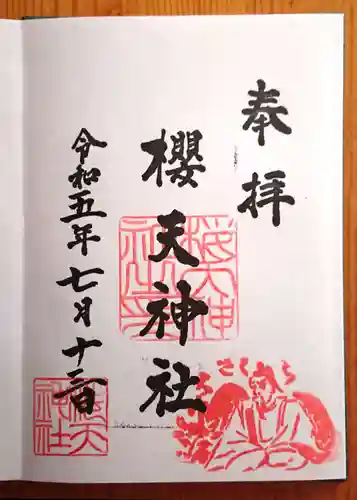 奉拝
櫻天神社
令和五年七月十三日
さくら